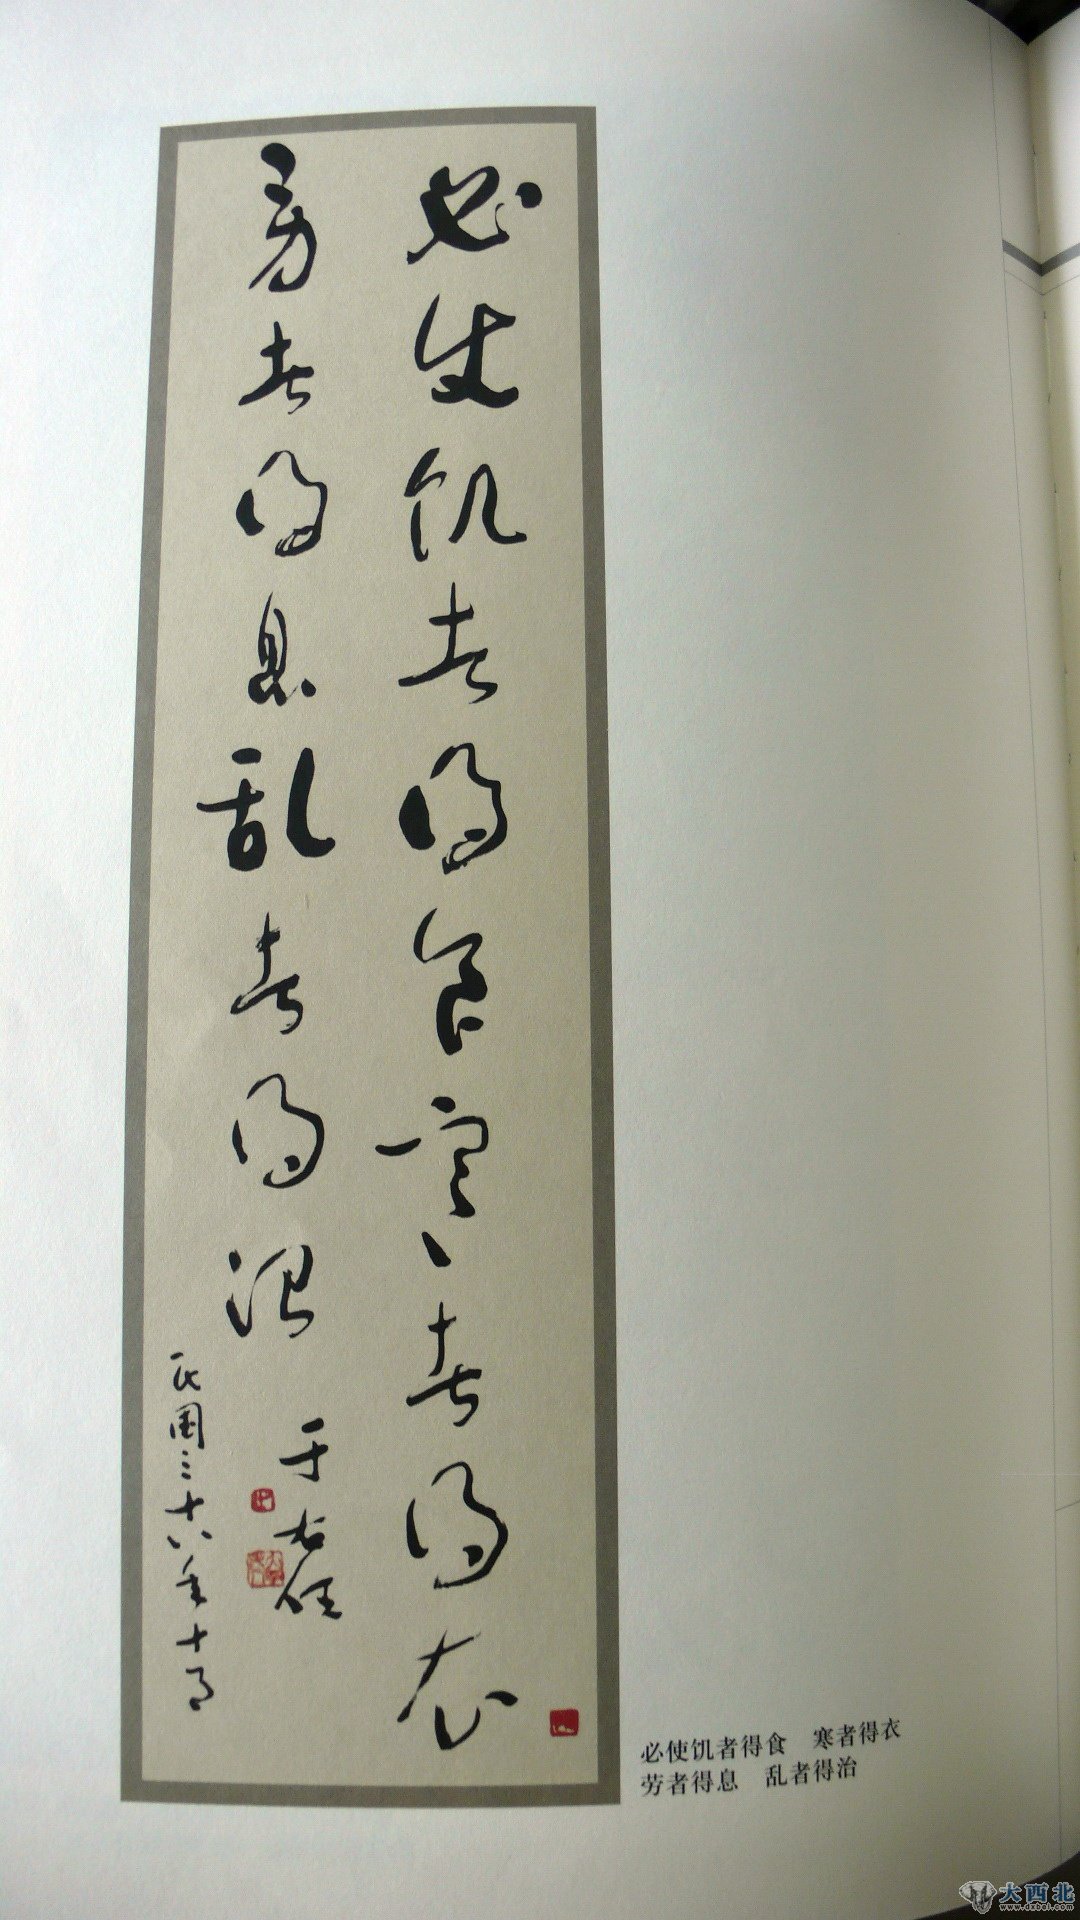 必使饥者得食寒者得衣
劳者得息乱者得治
于右任
民国三十八年十月
必使饥者得食 寒者得衣
劳者得息 乱者得治
大西北
www.dxbei.com